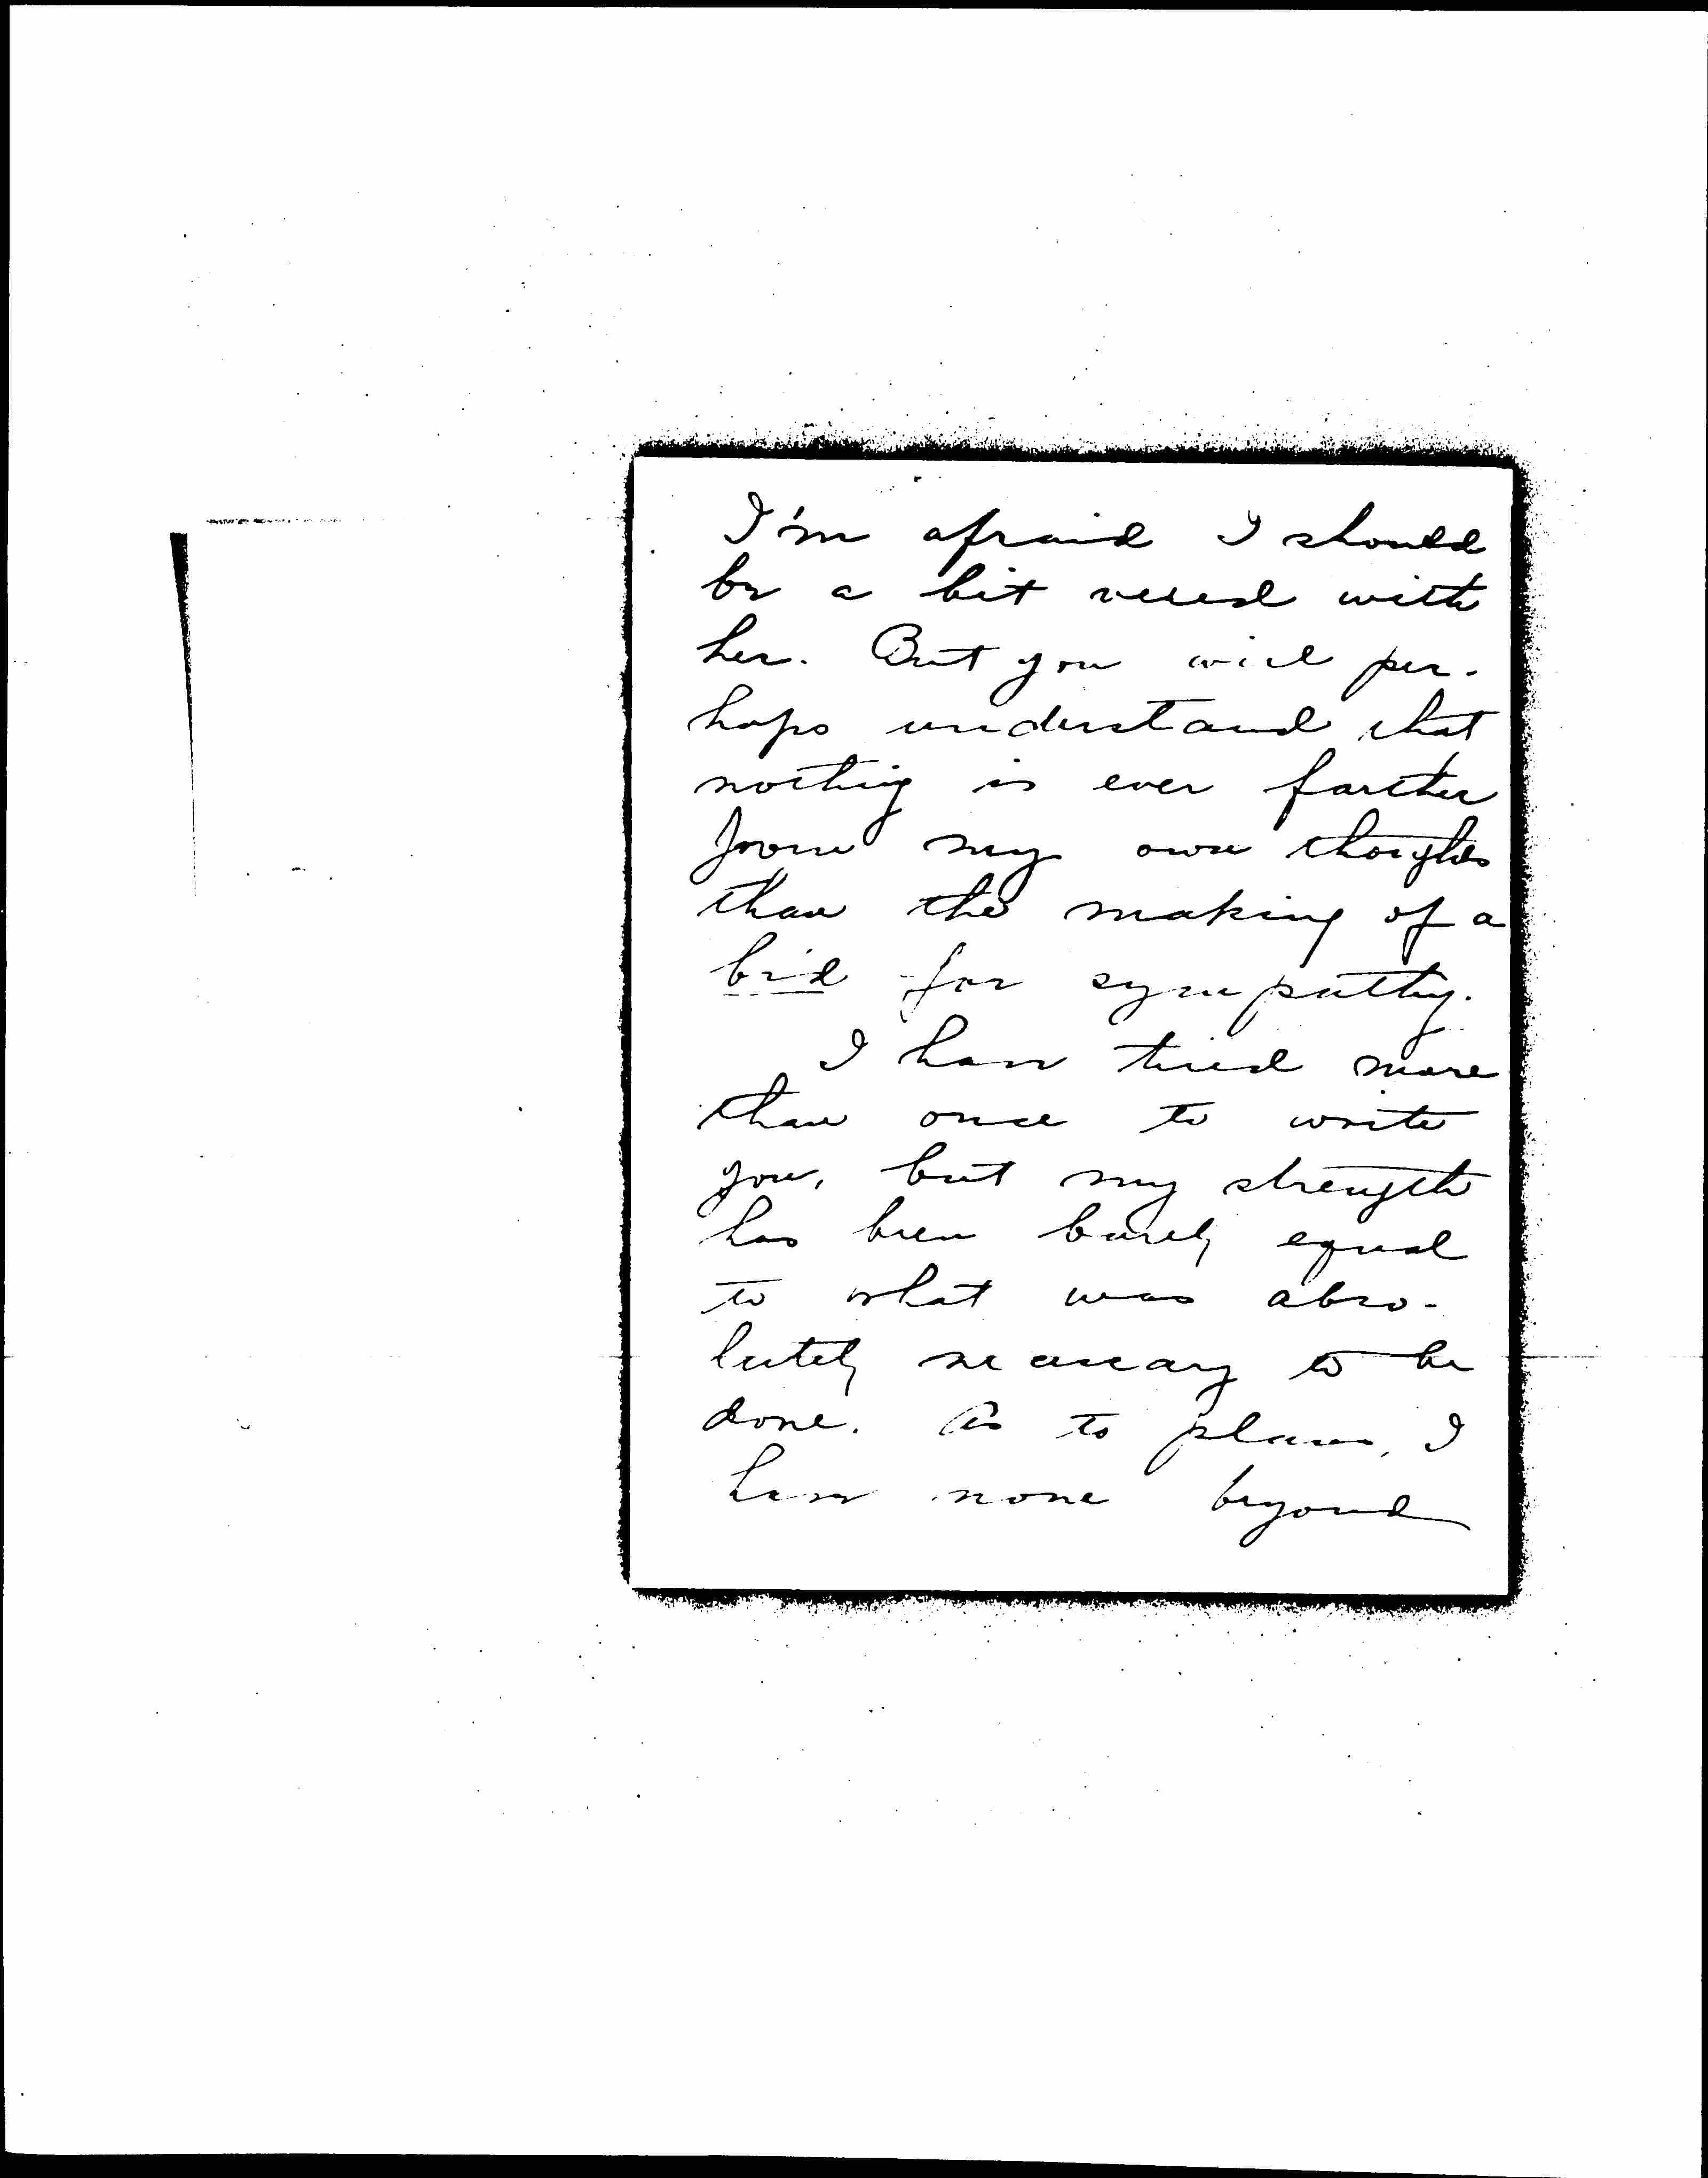 I'm afraid I should
be a bit vexed with
her. But you will per-
haps understand that
nothing is ever farther
from my own thoughts
than the making of a
bid for sympathy.
I have tried more
than once to write
you, but my strength
has been barely equal
to what was abso-
lutely necessary to be
done. As to plans, I
have none beyond